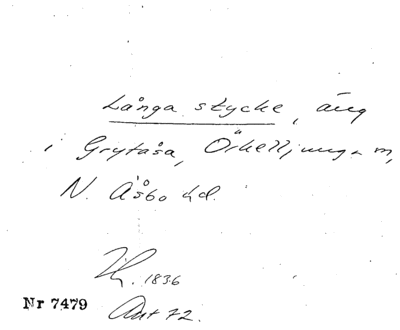 Långa stycke, äng
i Grytåsa, Örkelljunga m,
N. Åsbo hd.
1836
Nr 7479 Ant 72.